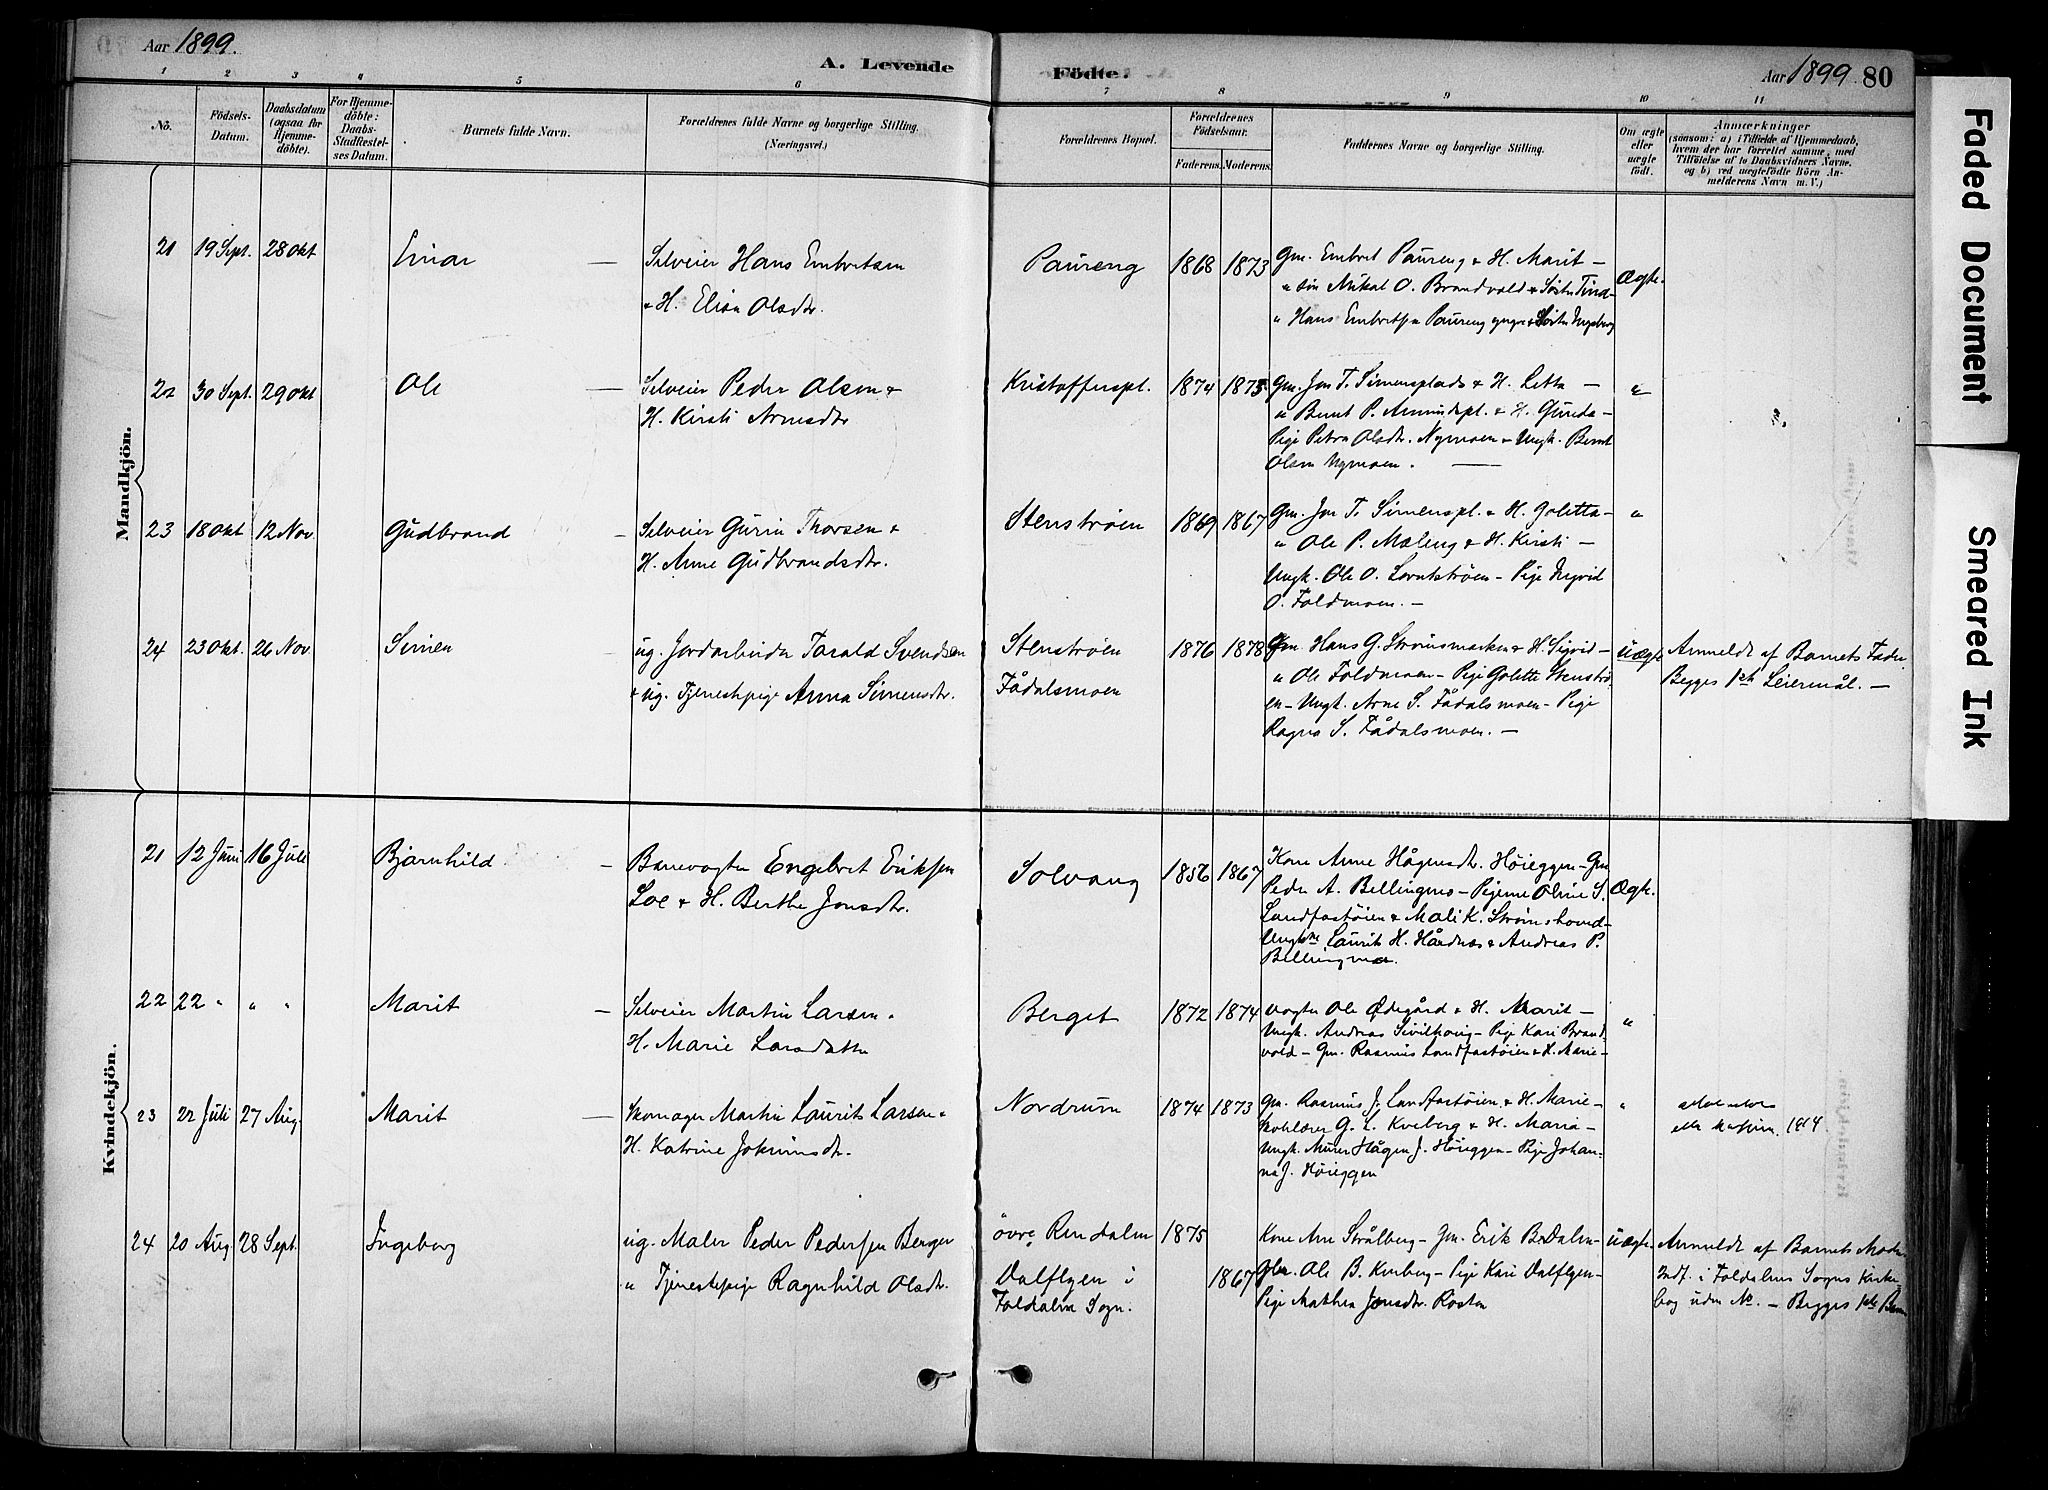 Aar 1899.
A. Levende Födte.
Aar 1899. 80
1 2 3 4 5 6 7 8 9 10 11
No.
Födsels-
Datum.
Daabsdatum
(ogsaa for
Hjemme-
döbte).
For Hjemme-
döbte:
Daabs-
Stadfæstel-
ses Datum.
Barnets fulde Navn.
Forældrenes fulde Navne og borgerlige Stilling.
(Næringsvei.)
Forældrenes Bopæl.
Forældrenes
Födselsaar.
Faderens. Moderens.
Faddernes Navne og borgerlige Stilling.
Om ægte
eller
uægte
født.
Anmærkninger
(saasom: a) i Tilfælde af Hjemmedaab,
hvem der har forrettet samme, med
Tilföielse af to Daabsvidners Navne.
og b) ved uægtefödte Börn An-
melderens Navn m. V.)
Mandkjön.
21 19 Sept. 28 Okt Einar —
Selveier Hans Embretsen
& H. Elisa Olsdtr.
Paureng 1868 1873
Gm. Embret Paureng & H. Marit —
" Mikal O. Brandvold &
" Hans Embretsen Paureng
Ægte.
22 30 Sept. 29 Okt Ole —
Selveier Peder Olsen &
H. Kirsti Arnesdtr
Kristofferspl. 1874 1875
Gm. Jon T. Simensplads & H. Letta —
" Bernt P. & H. Gunda —
Pige Petra Olsdtr. Nymoen & Ungk. Bernt
Olsen Nymoen. —
"
23 18 Okt 12 Nov Gudbrand —
Selveier Thorsen &
H. Anne Gudbrandsdtr.
Stenströen 1869 1867
Gm. Jon T. Simenspl. & H. Goletta —
" Ole P. Mæleng & H. Kirsti —
Ungk. Ole O. — Pige Ingrid
O. Foldmoen. —
"
24 23 Okt. 26 Nov. Simen
ug. Jordarbeider Tarald Svendsen
& ug. Tjenestepige Anna Simensdtr.
Stenströen
Fådalsmoen
1876 1878
Gm. Hans G. Strömsmarken & H. Sigrid —
" Ole Foldmoen — Pige Golette Stenströ-
en — Ungk. Arne S. Fådalsmoen — Pige
Ragna S. Fådalsmoen. —
uægte
Anmeldt af Barnets Fader.
Begges 1ste Leiermål. —
Kvindekjön.
21 12 Juni 16 Juli Bjarnhild —
Banevogter Engebret Eriksen
Loe & H. Berthe Jonsdtr.
Solvang 1856 1867
Kone Anne Hågensdtr. Höieggen — Gm
Peder A. Bellingmo — Pigerne Oline S.
Landfastöien & Mali K. Strömshoved —
Ungkne Laurits H. & Andreas P.
Bellingmo.
Ægte.
22 22 " " " Marit —
Selveier Martin Larsen &
H. Marie Larsdatter
Berget 1872 1874
Vogter Ole Ødegård & H. Marit —
Ungk. Andreas Sivilhaug — Pige Kari Brand-
vold — Gm. Rasmus Landfastöien & H. Marie —
"
23 22 Juli 27 Aug. Marit —
Skomager Martin Laurits Larsen &
H. Katrine Jokumsdtr.
Nordrum 1874 1873
Gm. Rasmus J. Landfastöien & H. Marie —
Skolelærer G. L. Kveberg & H. Maria —
Ungk. Murer Hågen J. Höieggen — Pige Johan-
na J. Höieggen
"
24 20 Aug. 28 Sept. Ingeborg
ug. Maler Peder Pedersen Berger
" Tjenestepige Ragnhild Olsdtr.
övre Rendalen 1875
Dalflyen i
Foldalen Sogn.
1867
Kone Ane Strålberg — Gm. Erik B. Dalen —
Gm. Ole B. Kveberg — Pige Kari Dalflyen —
Pige Mathea Jonsdtr. Rosten
uægte
Anmeldt af Barnets Moder
Indf. i Foldalens Sogns Kirke-
bog uden No. — Begges 1ste Barn
Faded Document
Smeared Ink